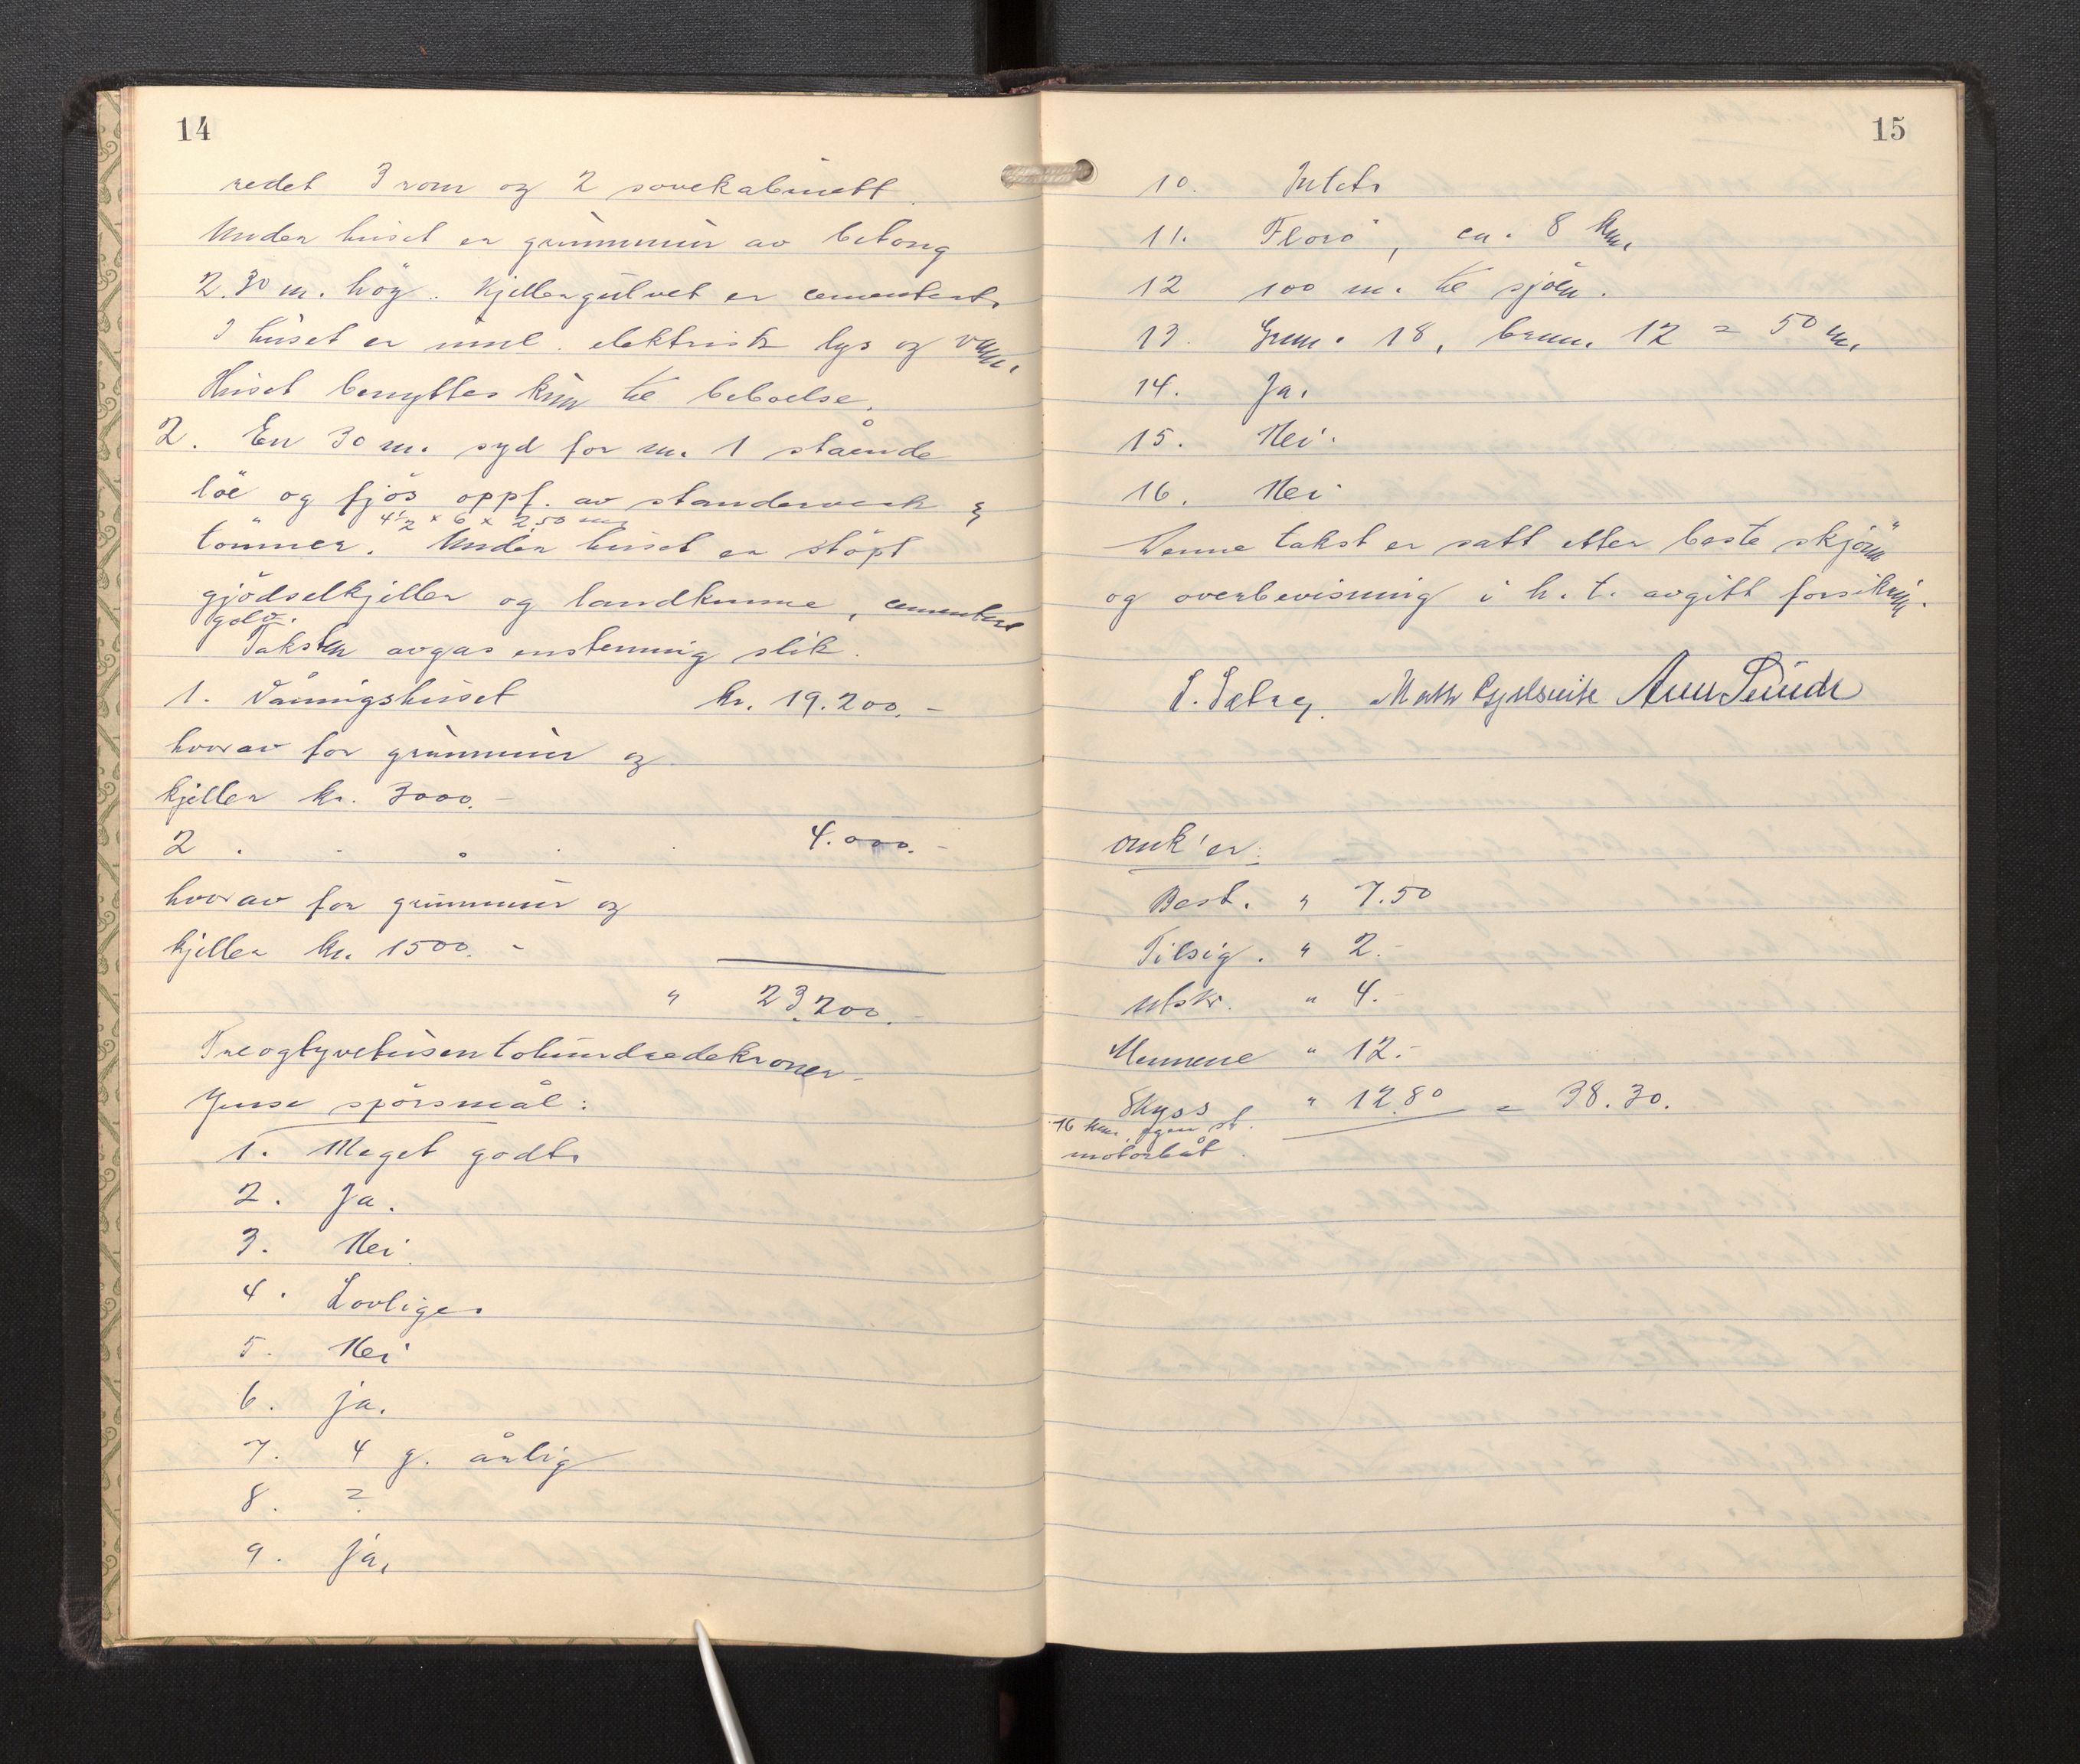 14
redet 3 rom og 2 sovekabinett.
Under huset er grunnmur av betong
2.30 m. höy. Kjellergulvet er cementert.
I huset er innl. elektrisk lys og vann.
Huset benyttes kun til beboelse.
2. En 30 m. syd for nr. 1 stående
löe og fjös oppf. av standerverk &
4½ x 6 x 2,50 m
tömmer. Under huset er stöpt
gjödselkjeller og landkumme, cementert
golv.
Taksten avgas enstemmig slik.
1. Våningshuset kr. 19.200.-
hvorav for grunnmur og
kjeller kr. 3000.-
2 . . . . . 4.000.-
hvorav for grunnmur og
kjeller kr. 1500.-
" 23.200.-
Treogtyvetusentohundredekroner.
Jnse spörsmål:
1. Meget godt.
2. Ja.
3. Nei
4. Lovlige.
5. Nei
6. ja.
7. 4 g. årlig
8. =
9. ja.
15
10. Intet.
11. Florö, ca. 8 km.
12 100 m. til sjöen.
13. Gnr. 18, brnr. 12 = 50 m.
14. Ja.
15. Nei.
16. Nei
Denne takst er satt etter beste skjönn
og overbevisning i h. t. avgitt forsikring.
S. Sæbrg.
Omk'er:
Best. " 7.50
Tilsig. " 2.-
Utskr. " 4.-
Mennene " 12.-
Skyss " 12.80 = 38.30.
16 km. egen st.
motorbåt.